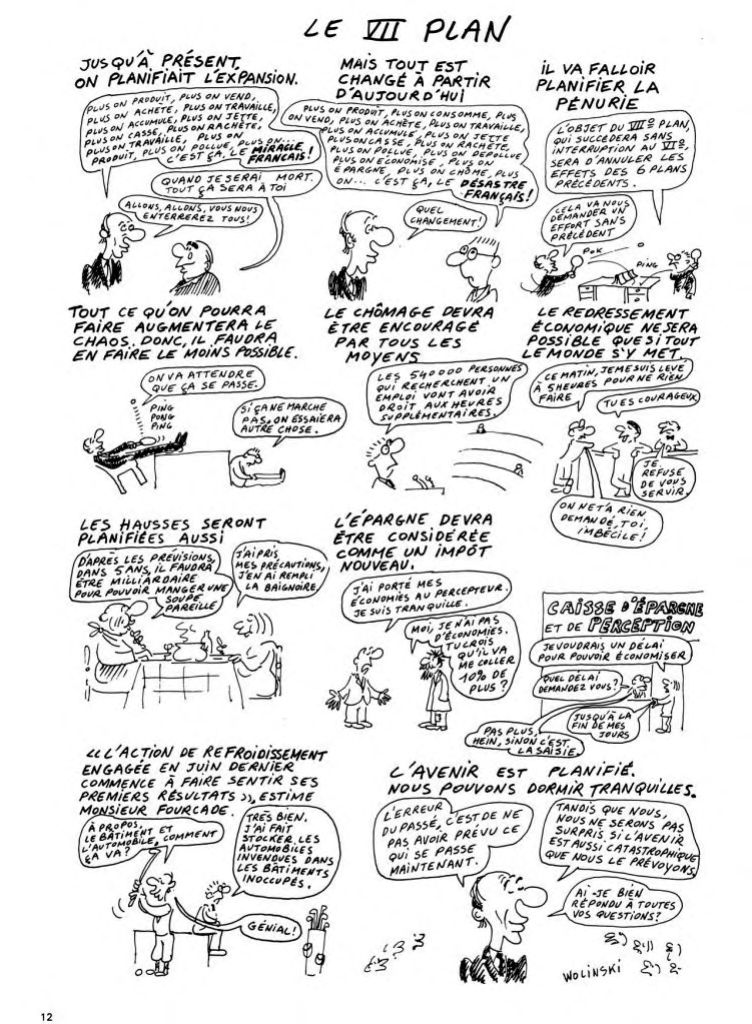 LE VII PLAN
JUSQU'À PRÉSENT,
ON PLANIFIAIT L'EXPANSION.
PLUS ON PRODUIT, PLUS ON VEND,
PLUS ON ACHÈTE, PLUS ON TRAVAILLE,
PLUS ON ACCUMULE, PLUS ON JETTE,
PLUS ON CASSE, PLUS ON RACHÈTE,
PLUS ON TRAVAILLE, PLUS ON
PRODUIT, PLUS ON POLLUE, PLUS ON...
C'EST ÇA, LE MIRACLE
FRANÇAIS!
QUAND JE SERAI MORT.
TOUT ÇA SERA À TOI
ALLONS, ALLONS, VOUS NOUS
ENTERREREZ TOUS!
MAIS TOUT EST
CHANGÉ À PARTIR
D'AUJOURD'HUI
PLUS ON PRODUIT, PLUS ON CONSOMME, PLUS
ON VEND, PLUS ON ACHÈTE, PLUS ON TRAVAILLE,
PLUS ON ACCUMULE, PLUS ON JETTE
PLUS ON CASSE, PLUS ON RACHÈTE,
PLUS ON POLLUE, PLUS ON DÉPOLLUE,
PLUS ON ÉCONOMISE, PLUS ON
ÉPARGNE, PLUS ON CHÔME, PLUS
ON... C'EST ÇA, LE DÉSASTRE
FRANÇAIS!
QUEL
CHANGEMENT!
IL VA FALLOIR
PLANIFIER LA
PÉNURIE
L'OBJET DU VIIe PLAN,
QUI SUCCÈDERA SANS
INTERRUPTION AU VIe,
SERA D'ANNULER LES
EFFETS DES 6 PLANS
PRÉCÉDENTS.
CELA VA NOUS
DEMANDER UN
EFFORT SANS
PRÉCÉDENT
POK
PING
TOUT CE QU'ON POURRA
FAIRE AUGMENTERA LE
CHAOS. DONC, IL FAUDRA
EN FAIRE LE MOINS POSSIBLE.
ON VA ATTENDRE
QUE ÇA SE PASSE.
PING
PONG
PING
SI ÇA NE MARCHE
PAS, ON ESSAIERA
AUTRE CHOSE.
LE CHÔMAGE DEVRA
ÊTRE ENCOURAGÉ
PAR TOUS LES
MOYENS
LES 540000 PERSONNES
QUI RECHERCHENT UN
EMPLOI VONT AVOIR
DROIT AUX HEURES
SUPPLÉMENTAIRES.
LE REDRESSEMENT
ÉCONOMIQUE NE SERA
POSSIBLE QUE SI TOUT
LE MONDE S'Y MET.
CE MATIN, JE ME SUIS LEVÉ
À 5 HEURES POUR NE RIEN
FAIRE
TU ES COURAGEUX
JE
REFUSE
DE VOUS
SERVIR.
ON NE T'A RIEN
DEMANDÉ, TOI,
IMBÉCILE!
LES HAUSSES SERONT
PLANIFIÉES AUSSI
D'APRÈS LES PRÉVISIONS,
DANS 5 ANS, IL FAUDRA
ÊTRE MILLIARDAIRE
POUR POUVOIR MANGER UNE
SOUPE
PAREILLE
J'AI PRIS
MES PRÉCAUTIONS,
J'EN AI REMPLI
LA BAIGNOIRE.
L'ÉPARGNE DEVRA
ÊTRE CONSIDÉRÉE
COMME UN IMPÔT
NOUVEAU.
J'AI PORTÉ MES
ÉCONOMIES AU PERCEPTEUR.
JE SUIS TRANQUILLE.
MOI, JE N'AI PAS
D'ÉCONOMIES.
TU CROIS
QU'IL VA
ME COLLER
10% DE
PLUS?
CAISSE D'ÉPARGNE
ET DE PERCEPTION
JE VOUDRAIS UN DÉLAI
POUR POUVOIR ÉCONOMISER
QUEL DÉLAI
DEMANDEZ VOUS?
JUSQU'À LA
FIN DE MES
JOURS
PAS PLUS,
HEIN, SINON C'EST
LA SAISIE.
« L'ACTION DE REFROIDISSEMENT
ENGAGÉE EN JUIN DERNIER
COMMENCE À FAIRE SENTIR SES
PREMIERS RÉSULTATS », ESTIME
MONSIEUR FOURCADE.
À PROPOS,
LE BÂTIMENT ET
L'AUTOMOBILE, COMMENT
ÇA VA?
TRÈS BIEN.
J'AI FAIT
STOCKER LES
AUTOMOBILES
INVENDUES DANS
LES BÂTIMENTS
INOCCUPÉS.
GÉNIAL!
L'AVENIR EST PLANIFIÉ.
NOUS POUVONS DORMIR TRANQUILLES.
L'ERREUR
DU PASSÉ, C'EST DE NE
PAS AVOIR PRÉVU CE
QUI SE PASSE
MAINTENANT.
TANDIS QUE NOUS,
NOUS NE SERONS PAS
SURPRIS, SI L'AVENIR
EST AUSSI CATASTROPHIQUE
QUE NOUS LE PRÉVOYONS.
AI-JE BIEN
RÉPONDU À TOUTES
VOS QUESTIONS?
WOLINSKI
12